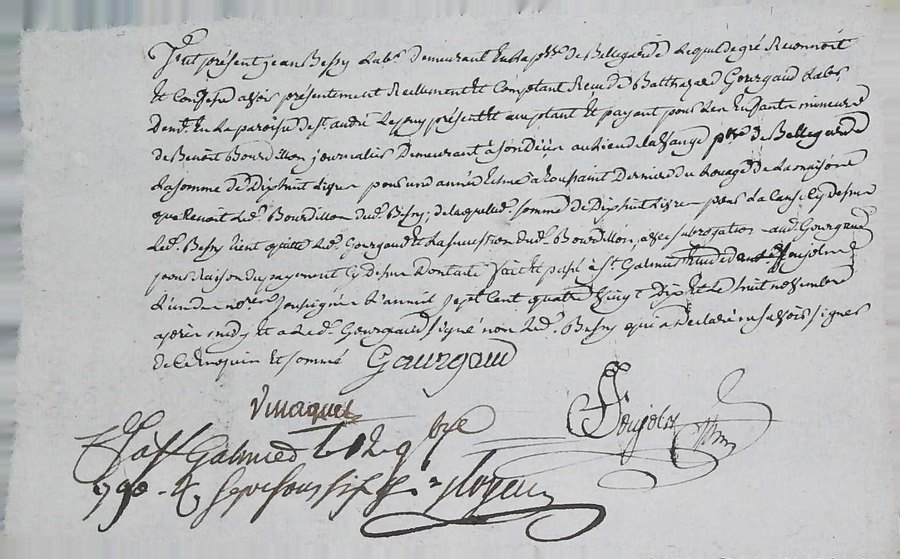 fut présent jean Bessy Labr. demeurant En La psse. de Bellegarde Lequel de gré Reconnoit
Et Confesse avoir présentement Reellement Et Comptant Receu de Balthazard Gourgaud Labr
demt. En La paroisse de st. andré Le puy présent Et acceptant Et payant pour Les Enfants mineurs
de Benoit Bourdillon journalier demeurant à son décès au lieu de psse de Bellegarde
La somme de Dixhuit Livres pour une année Echue a Toussaint derniere du Louage de La maison
que tenoit Led. Bourdillon dud. Bessy; de laquelle somme de Dixhuit Livres pour La Cause Cy dessus
Led. Bessy tient quitte Led. Gourgaud Et La succession dud. Bourdillon, avec subrogation aud. Gourgaud
pour Raison du payement Cy dessus dont acte fait Et passé à st. Galmier Etude de
L'un des nores. soussignés L'année sept Cent quatre vingt Dix Et Le huit novembre
après midy Et a Led. Gourgaud signé non Led. Bessy qui a déclaré ne savoir signer
de Ce Enquis Et sommé Gourgaud
Vinaquet
Galmier Le 9bre
1790 quinze sous